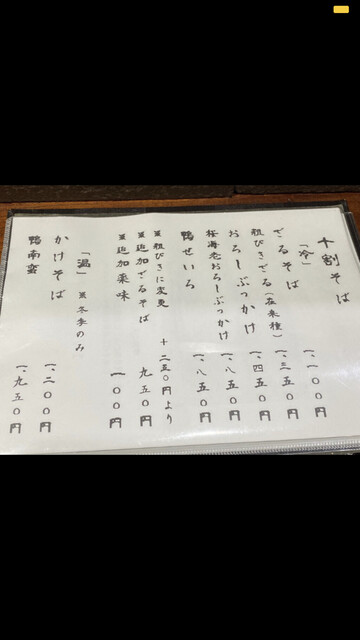 十割そば
「冷」
ざるそば 一、一〇〇円
粗びきざる(在来種) 一、三五〇円
おろしぶっかけ 一、四五〇円
桜海老おろしぶっかけ 一、八五〇円
鴨せいろ 一、八五〇円
※粗びきに変更 +二五〇円より
※追加ざるそば 九五〇円
※追加薬味 一〇〇円
「温」 ※冬季のみ
かけそば 一、二〇〇円
鴨南蛮 一、九五〇円